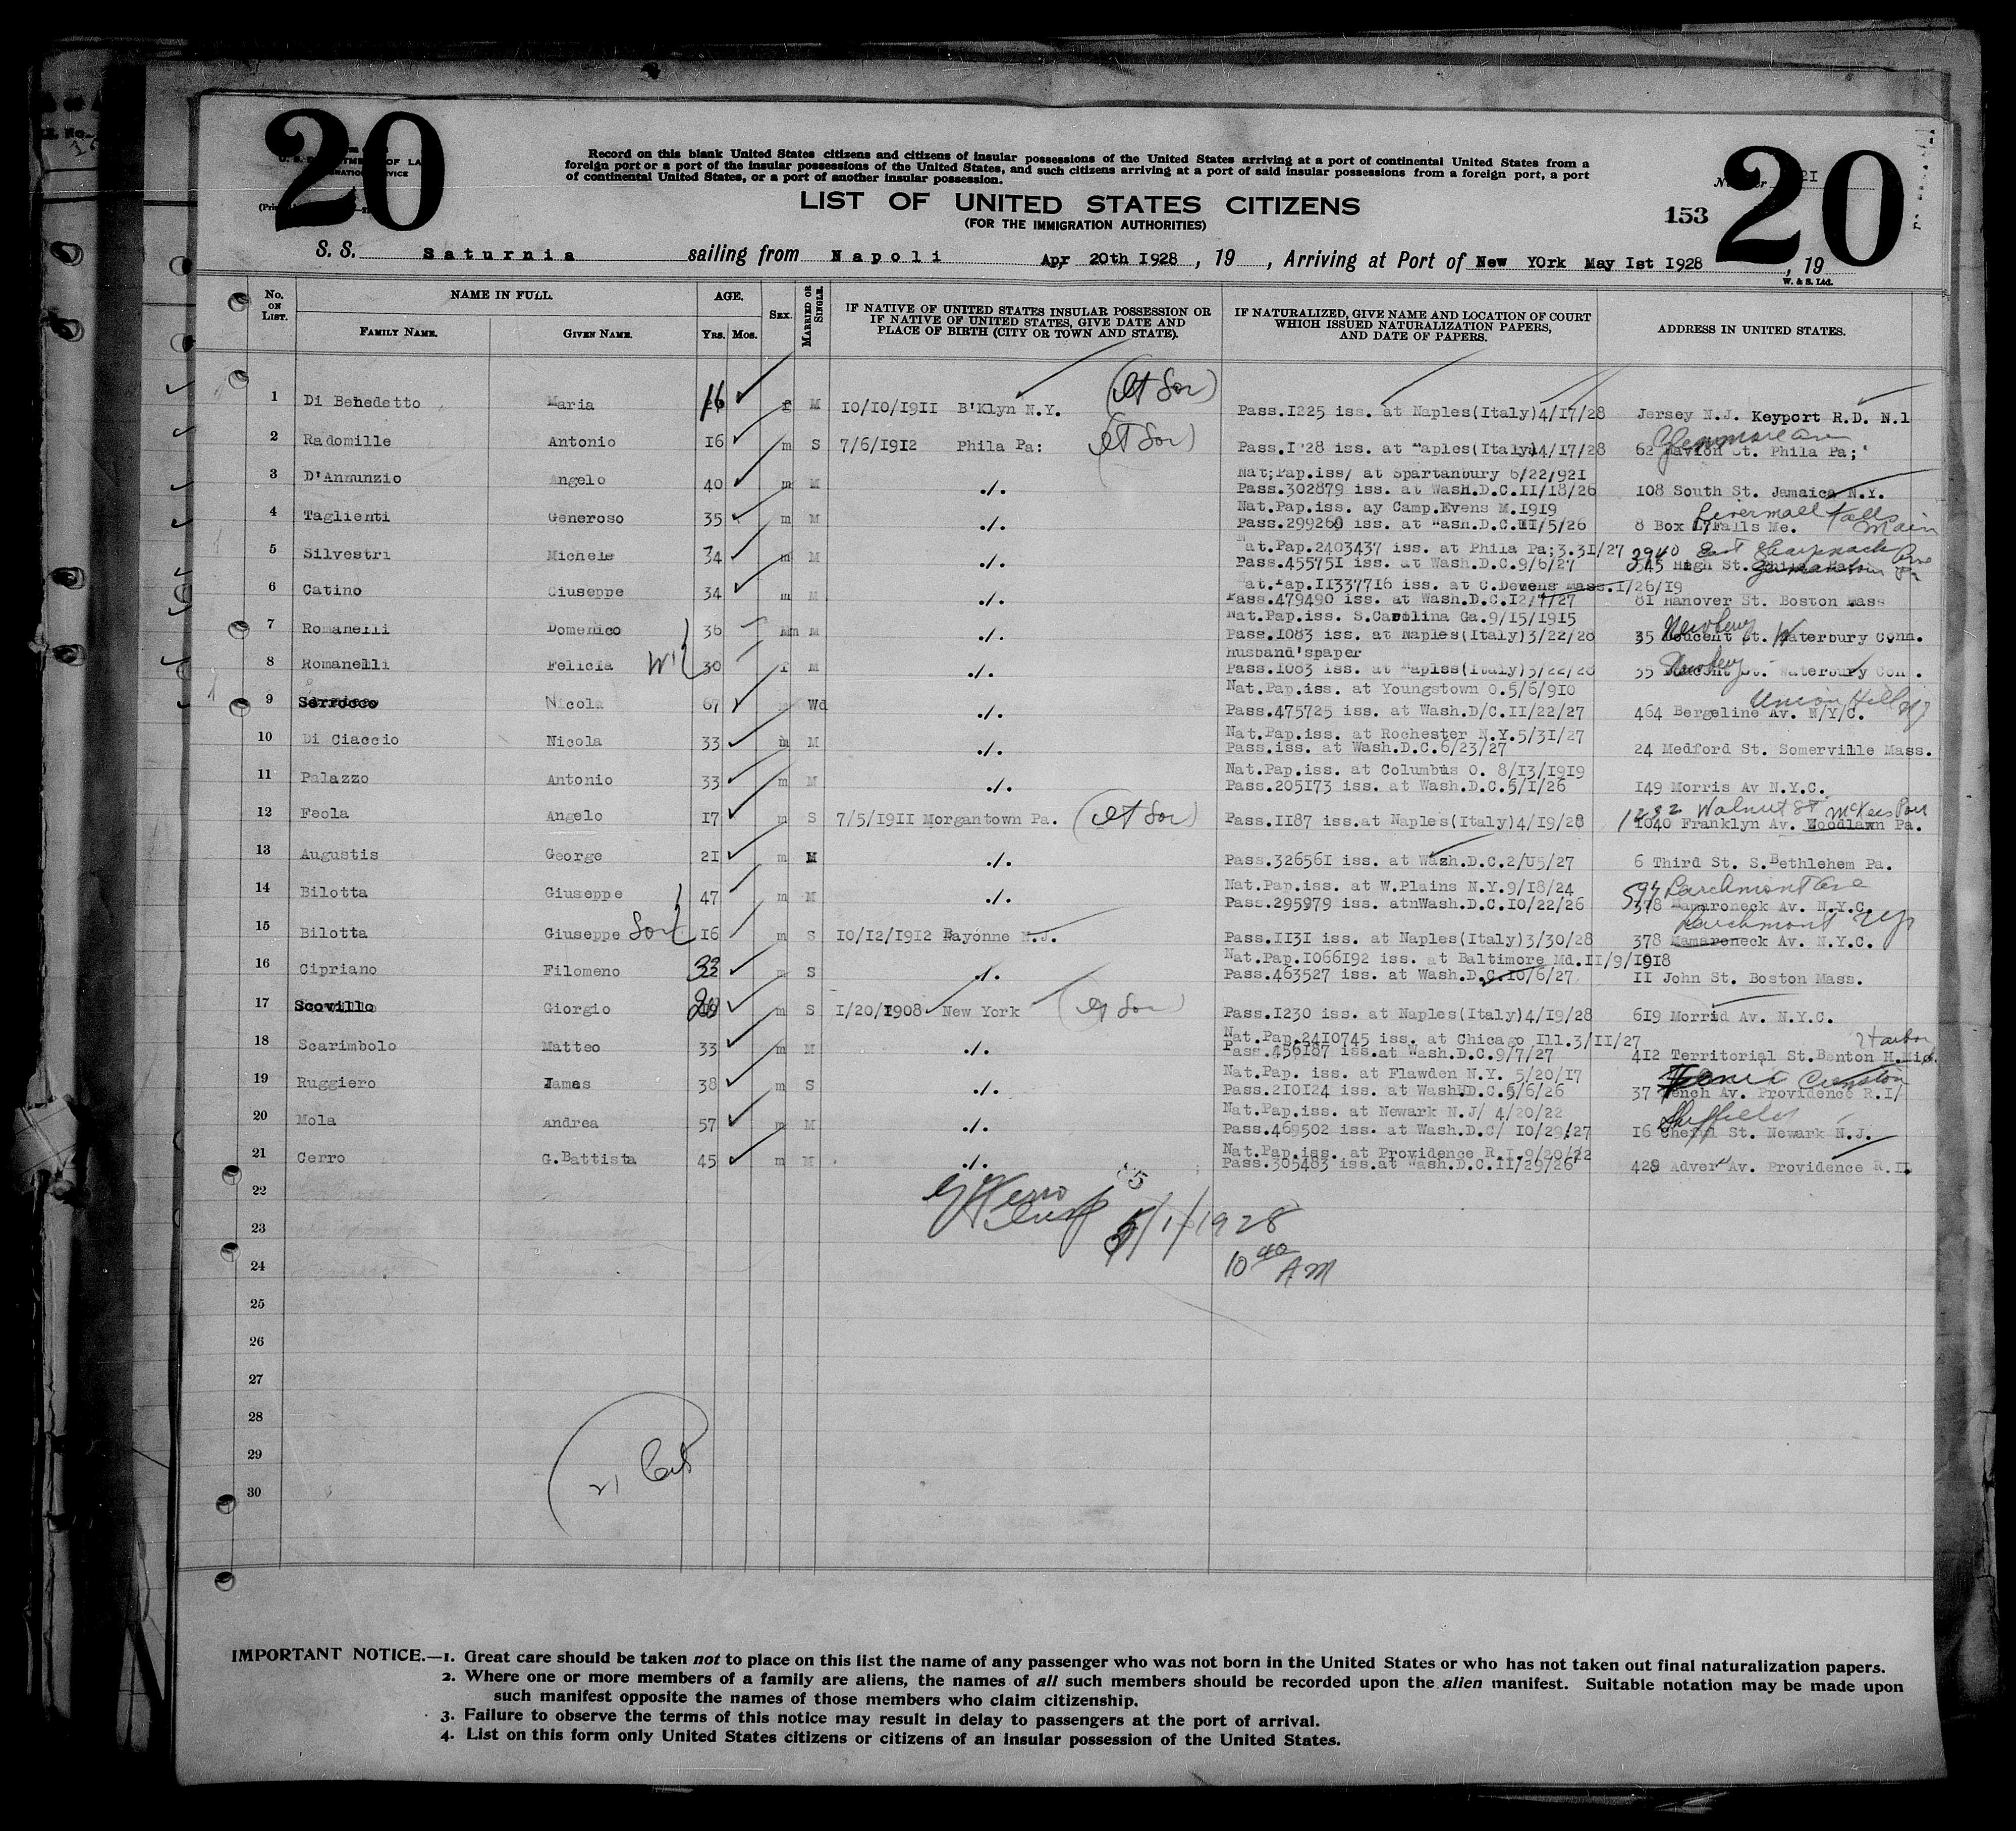 20
20
Record on this blank United States citizens and citizens of insular possessions of the United States arriving at a port of continental United States from a
foreign port or a port of the insular possessions of the United States, and such citizens arriving at a port of said insular possessions from a foreign port, a port
of continental United States, or a port of another insular possession.
LIST OF UNITED STATES CITIZENS
(FOR THE IMMIGRATION AUTHORITIES)
153
S. S. Saturnia sailing from Napoli Apr 20th 1928, 19 , Arriving at Port of New YOrk May 1st 1928, 19
W. & S. Ltd.
No. ON LIST. NAME IN FULL. FAMILY NAME. GIVEN NAME. AGE. Yrs. Mos. SEX. MARRIED OR SINGLE.
IF NATIVE OF UNITED STATES INSULAR POSSESSION OR IF NATIVE OF UNITED STATES, GIVE DATE AND PLACE OF BIRTH (CITY OR TOWN AND STATE).
IF NATURALIZED, GIVE NAME AND LOCATION OF COURT WHICH ISSUED NATURALIZATION PAPERS, AND DATE OF PAPERS.
ADDRESS IN UNITED STATES.
1 Di Benedetto Maria 16 f M 10/10/1911 B'Klyn N.Y. Pass.1225 iss. at Naples(Italy)4/17/28 Jersey N.J. Keyport R.D. N.1
2 Radomille Antonio 16 m S 7/6/1912 Phila Pa: Pass.1 28 iss. at aples(Italy)4/17/28 62 St. Phila Pa;
Nat;Pap.iss/ at Spartanbury 6/22/921
3 D'Annunzio Angelo 40 m M ./. Pass.302879 iss. at Wash.D.C.11/18/26 108 South St. Jamaica N.Y.
Nat.Pap.iss. ay Camp.Evens M.1919 Livermall Falls
4 Taglienti Generoso 35 m M ./. Pass.299260 iss. at ash.D.C. /5/26 8 Box Falls Me. Main
at.Pap.2403437 iss. at Phila Pa;3.31/27 3940 East
5 Silvestri Michele 34 m M ./. Pass.455751 iss. at Wash.D.C.9/6/27 545 High St.
at. ap.11337716 iss. at C.Devens Mass.1/26/19
6 Catino Giuseppe 34 m M ./. Pass.479490 iss. at Wash.D.C.12/7/27 81 Hanover St. Boston Mass
Nat.Pap.iss. S.Carolina Ga.9/15/1915
7 Romanelli Domenico 36 m M ./. Pass.1083 iss. at Naples(Italy)3/22/28 35 St. Waterbury Conn.
husband'spaper
8 Romanelli Felicia 30 f M ./. Pass.1083 iss. at aplss(Italy)3/22/28 35 St. Waterbury Con .
Nat.Pap.iss. at Youngstown O.5/6/910 Union Hill NJ
9 Nicola 67 Wd ./. Pass.475725 iss. at Wash.D/C.11/22/27 464 Bergeline Av. N/Y/C.
Nat.Pap.iss. at Rochester N.Y.5/31/27
10 Di Ciaccio Nicola 33 m M ./. Pass.iss. at Wash.D.C.6/23/27 24 Medford St. Somerville Mass.
Nat.Pap.iss. at Columbus O. 8/13/1919
11 Palazzo Antonio 33 m M ./. Pass.205173 iss. at Wash.D.C.5/1/26 149 Morris Av N.Y.C.
1232 Walnut St. McKees Port
12 Feola Angelo 17 m S 7/5/1911 Morgantown Pa. Pass.1187 iss.at Naples(Italy)4/19/28 1040 Franklyn Av. Woodlawn Pa.
13 Augustis George 21 m M ./. Pass.326561 iss. at Wash.D.C.2/U5/27 6 Third St. S.Bethlehem Pa.
Nat.Pap.iss. at W.Plains N.Y.9/18/24 Larchmont Ave
14 Bilotta Giuseppe 47 m M ./. Pass.295979 iss. atnWash.D.C.10/22/26 378 Mamaroneck Av. N.Y.C.
Larchmont NY
15 Bilotta Giuseppe Son 16 m S 10/12/1912 Bayonne N.J. Pass.1131 iss. at Naples(Italy)3/30/28 378 Mamaroneck Av. N.Y.C.
Nat.Pap.1066192 iss. at Baltimore Md.11/9/1918
16 Cipriano Filomeno 33 m S ./. Pass.463527 iss. at Wash.D.C.10/6/27 11 John St. Boston Mass.
17 Scovillo Giorgio 20 m S 1/20/1908 New York Pass.1230 iss. at Naples(Italy)4/19/28 619 Morrid Av. N.Y.C.
Nat.Pap.2410745 iss. at Chicago Ill.3/11/27 Harbor
18 Scarimbolo Matteo 33 m M ./. Pass.456187 iss.at Wash.D.C.9/7/27 412 Territorial St.Banton H.Mi
Nat.Pap. iss. at Flawden N.Y. 5/20/17 Cranston
19 Ruggiero James 38 m S ./. Pass.210124 iss. at WashHD.C.5/6/26 37 Tench Av. Providence R.I/
Nat.Pap.iss. at Newark N.J/ 4/20/22 Sheffield
20 Mola Andrea 57 m M ./. Pass.469502 iss. at Wash.D.C/ 10/29/27 16 St. Newark N.J.
Nat.Pap.iss. at Providence R.I.9/20/22
21 Cerro G.Battista 45 m M ./. Pass.305483 iss.at Wash.D.C.11/29/26 429 Adver Av. Providence R.I.
22
23 5/1/1928
24 10 40 AM
25
26
27
28
29
30
21
IMPORTANT NOTICE.—1. Great care should be taken not to place on this list the name of any passenger who was not born in the United States or who has not taken out final naturalization papers.
2. Where one or more members of a family are aliens, the names of all such members should be recorded upon the alien manifest. Suitable notation may be made upon
such manifest opposite the names of those members who claim citizenship.
3. Failure to observe the terms of this notice may result in delay to passengers at the port of arrival.
4. List on this form only United States citizens or citizens of an insular possession of the United States.